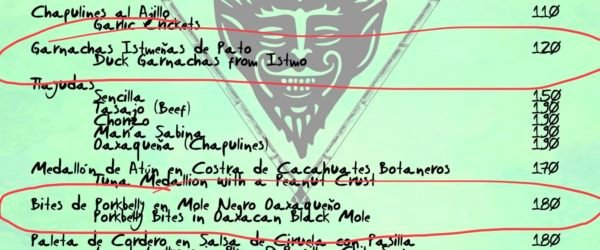 Chapulines al Ajillo 110
Garlic Crickets
Garnachas Istmeñas de Pato 120
Duck Garnachas from Istmo
Tlayudas
Sencilla 150
Tasajo (Beef) 190
Chorizo 190
María Sabina 190
Oaxaqueña (Chapulines) 190
Medallón de Atún en Costra de Cacahuates Botaneros 170
Tuna Medallion with a Peanut Crust
Bites de Porkbelly en Mole Negro Oaxaqueño 180
Porkbelly Bites in Oaxacan Black Mole
Paleta de Cordero en Salsa de Ciruela con Pasilla 180